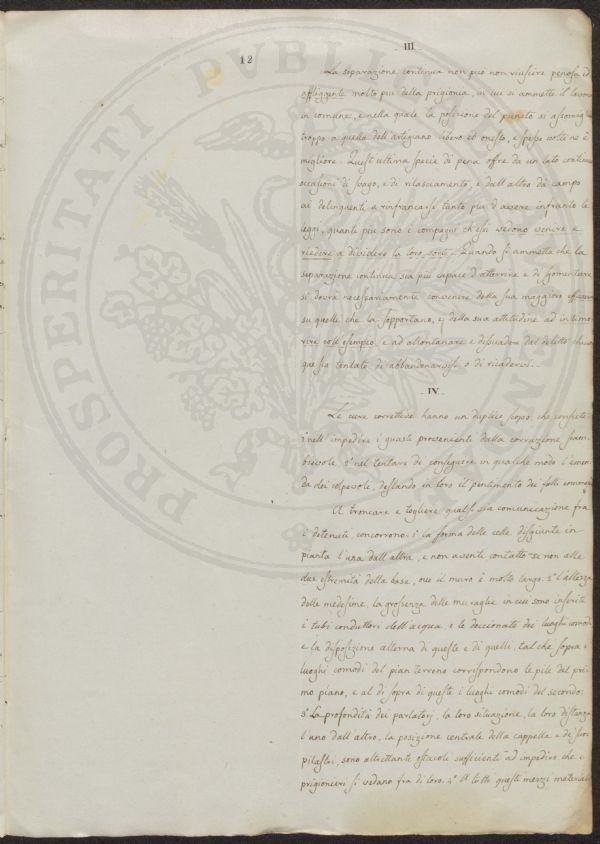 III.
12
La separazione continua non può non riuscire penosa ed
affliggente molto più della prigionia, in cui si ammette il lavoro
in comune, e nella quale la posizione del punito si assomiglia
troppo a quella dell'artigiano libero ed onesto, e spesse volte ne è
migliore. Quest'ultima specie di pena offre da un lato continue
occasioni di svago, e di rilasciamento, e dall'altro dà campo
ai delinquenti a rinfrancarsi tanto più d'avere infranto le
leggi, quanto più sono i compagni ch'essi vedono venire e
riedere a dividere la loro sorte. Quando si ammetta che la
separazione continua sia più capace d'atterrire e di sgomentare
si dovrà necessariamente convenire della sua maggiore efficacia
su quelli che la sopportano, e della sua attitudine ad intimo-
rire coll'esempio, e ad allontanare e dissuadere dal delitto chiunque
que sia tentato di abbandonarvisi o di ricadervi.
IV.
Le cure correttive hanno un duplice scopo, che consiste
1° nell'impedire i guasti provenienti dalla corruzione scam-
bievole, 2° nel tentare di conseguire in qualche modo l'emen-
da dei colpevoli, destando in loro il pentimento dei falli commessi.
A troncare e togliere qualsisia comunicazione fra
i detenuti concorrono. 1° la forma delle celle disgiunte in
pianta l'una dall'altra, e non aventi contatto se non alle
due estremità della base, ove il muro è molto largo. 2° l'altezza
delle medesime, la grossezza delle muraglie in cui sono inseriti
i tubi conduttori dell'acqua, e le doccionate dei luoghi comodi
e la disposizione alterna di queste e di quelle, tal che sopra i
luoghi comodi del pian terreno corrispondono le pile del pri-
mo piano, e al di sopra di queste i luoghi comodi del secondo:
3° La profondità dei parlatorj, la loro situazione, la loro distanza
l'uno dall'altro, la posizione centrale della cappella e de' suoi
pilastri, sono altrettante ostacoli sufficienti ad impedire che i
prigionieri si vedano fra di loro. 4° A tutti questi mezzi materiali
PROSPERITATI PVBLIC